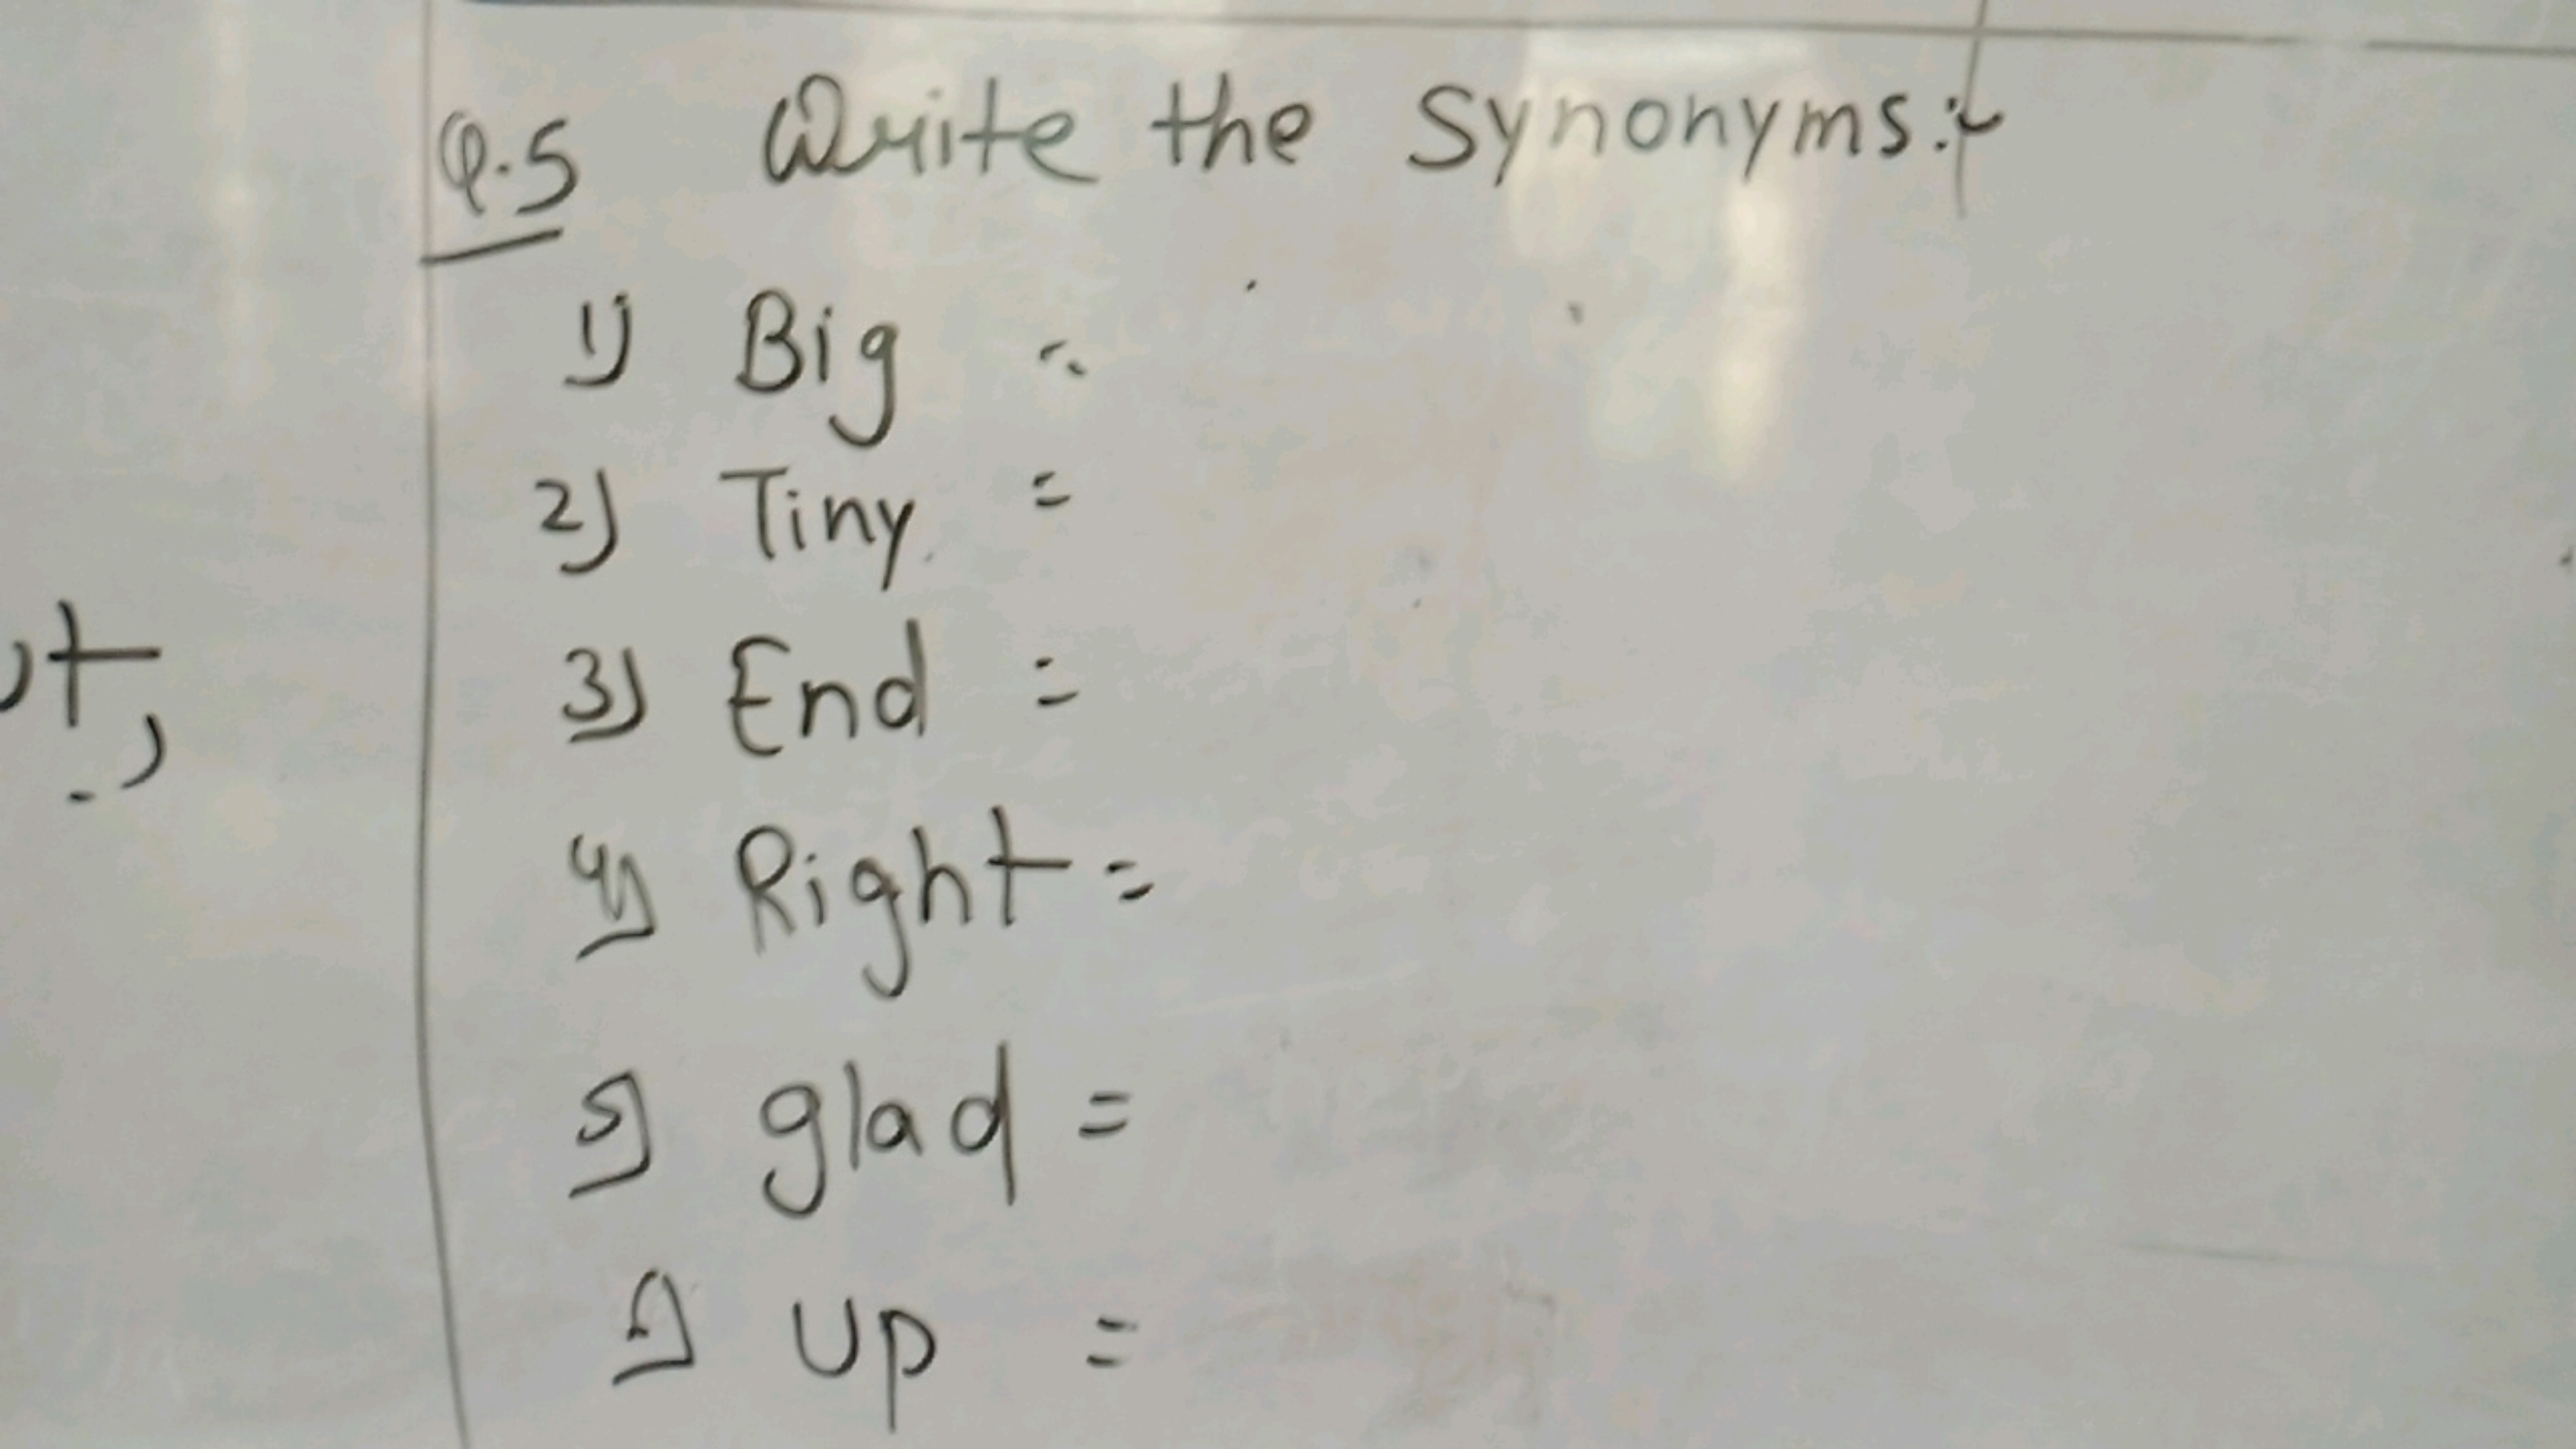 Q.5 Write the Synonyms:-
1) Big =
2) Tiny =
3) End =
4) Right =
5) glad =
6) up =